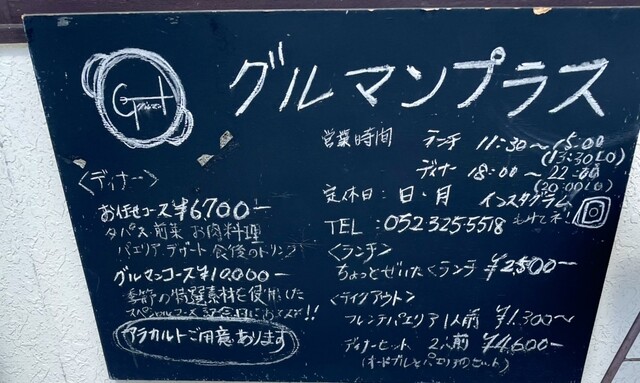 グルマンプラス
営業時間 ランチ 11:30〜15:00
(13:30LO)
ディナー 18:00〜22:00
(20:00LO)
定休日:日・月 インスタグラム
TEL:052 325 5518
〈ディナー〉
お任せコース ¥6700ー
タパス 前菜 お肉料理
パエリア デザート 食後のドリンク
グルマンコース ¥10,000ー
季節の特選素材を使用した
スペシャルコース 記念日におススメ!!
アラカルトご用意あります
〈ランチ〉
ちょっとぜいたくランチ ¥2500ー
〈テイクアウト〉
フレンチパエリア 1人前 ¥1,300〜
ディナーセット 2人前 ¥4,600ー
(オードブルとパエリアのセット)